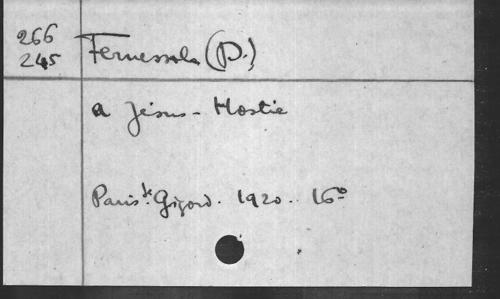 266
245
Fernessole (P.)
a Jésus-Hostie
Paris. de Gigord. 1920. 16º